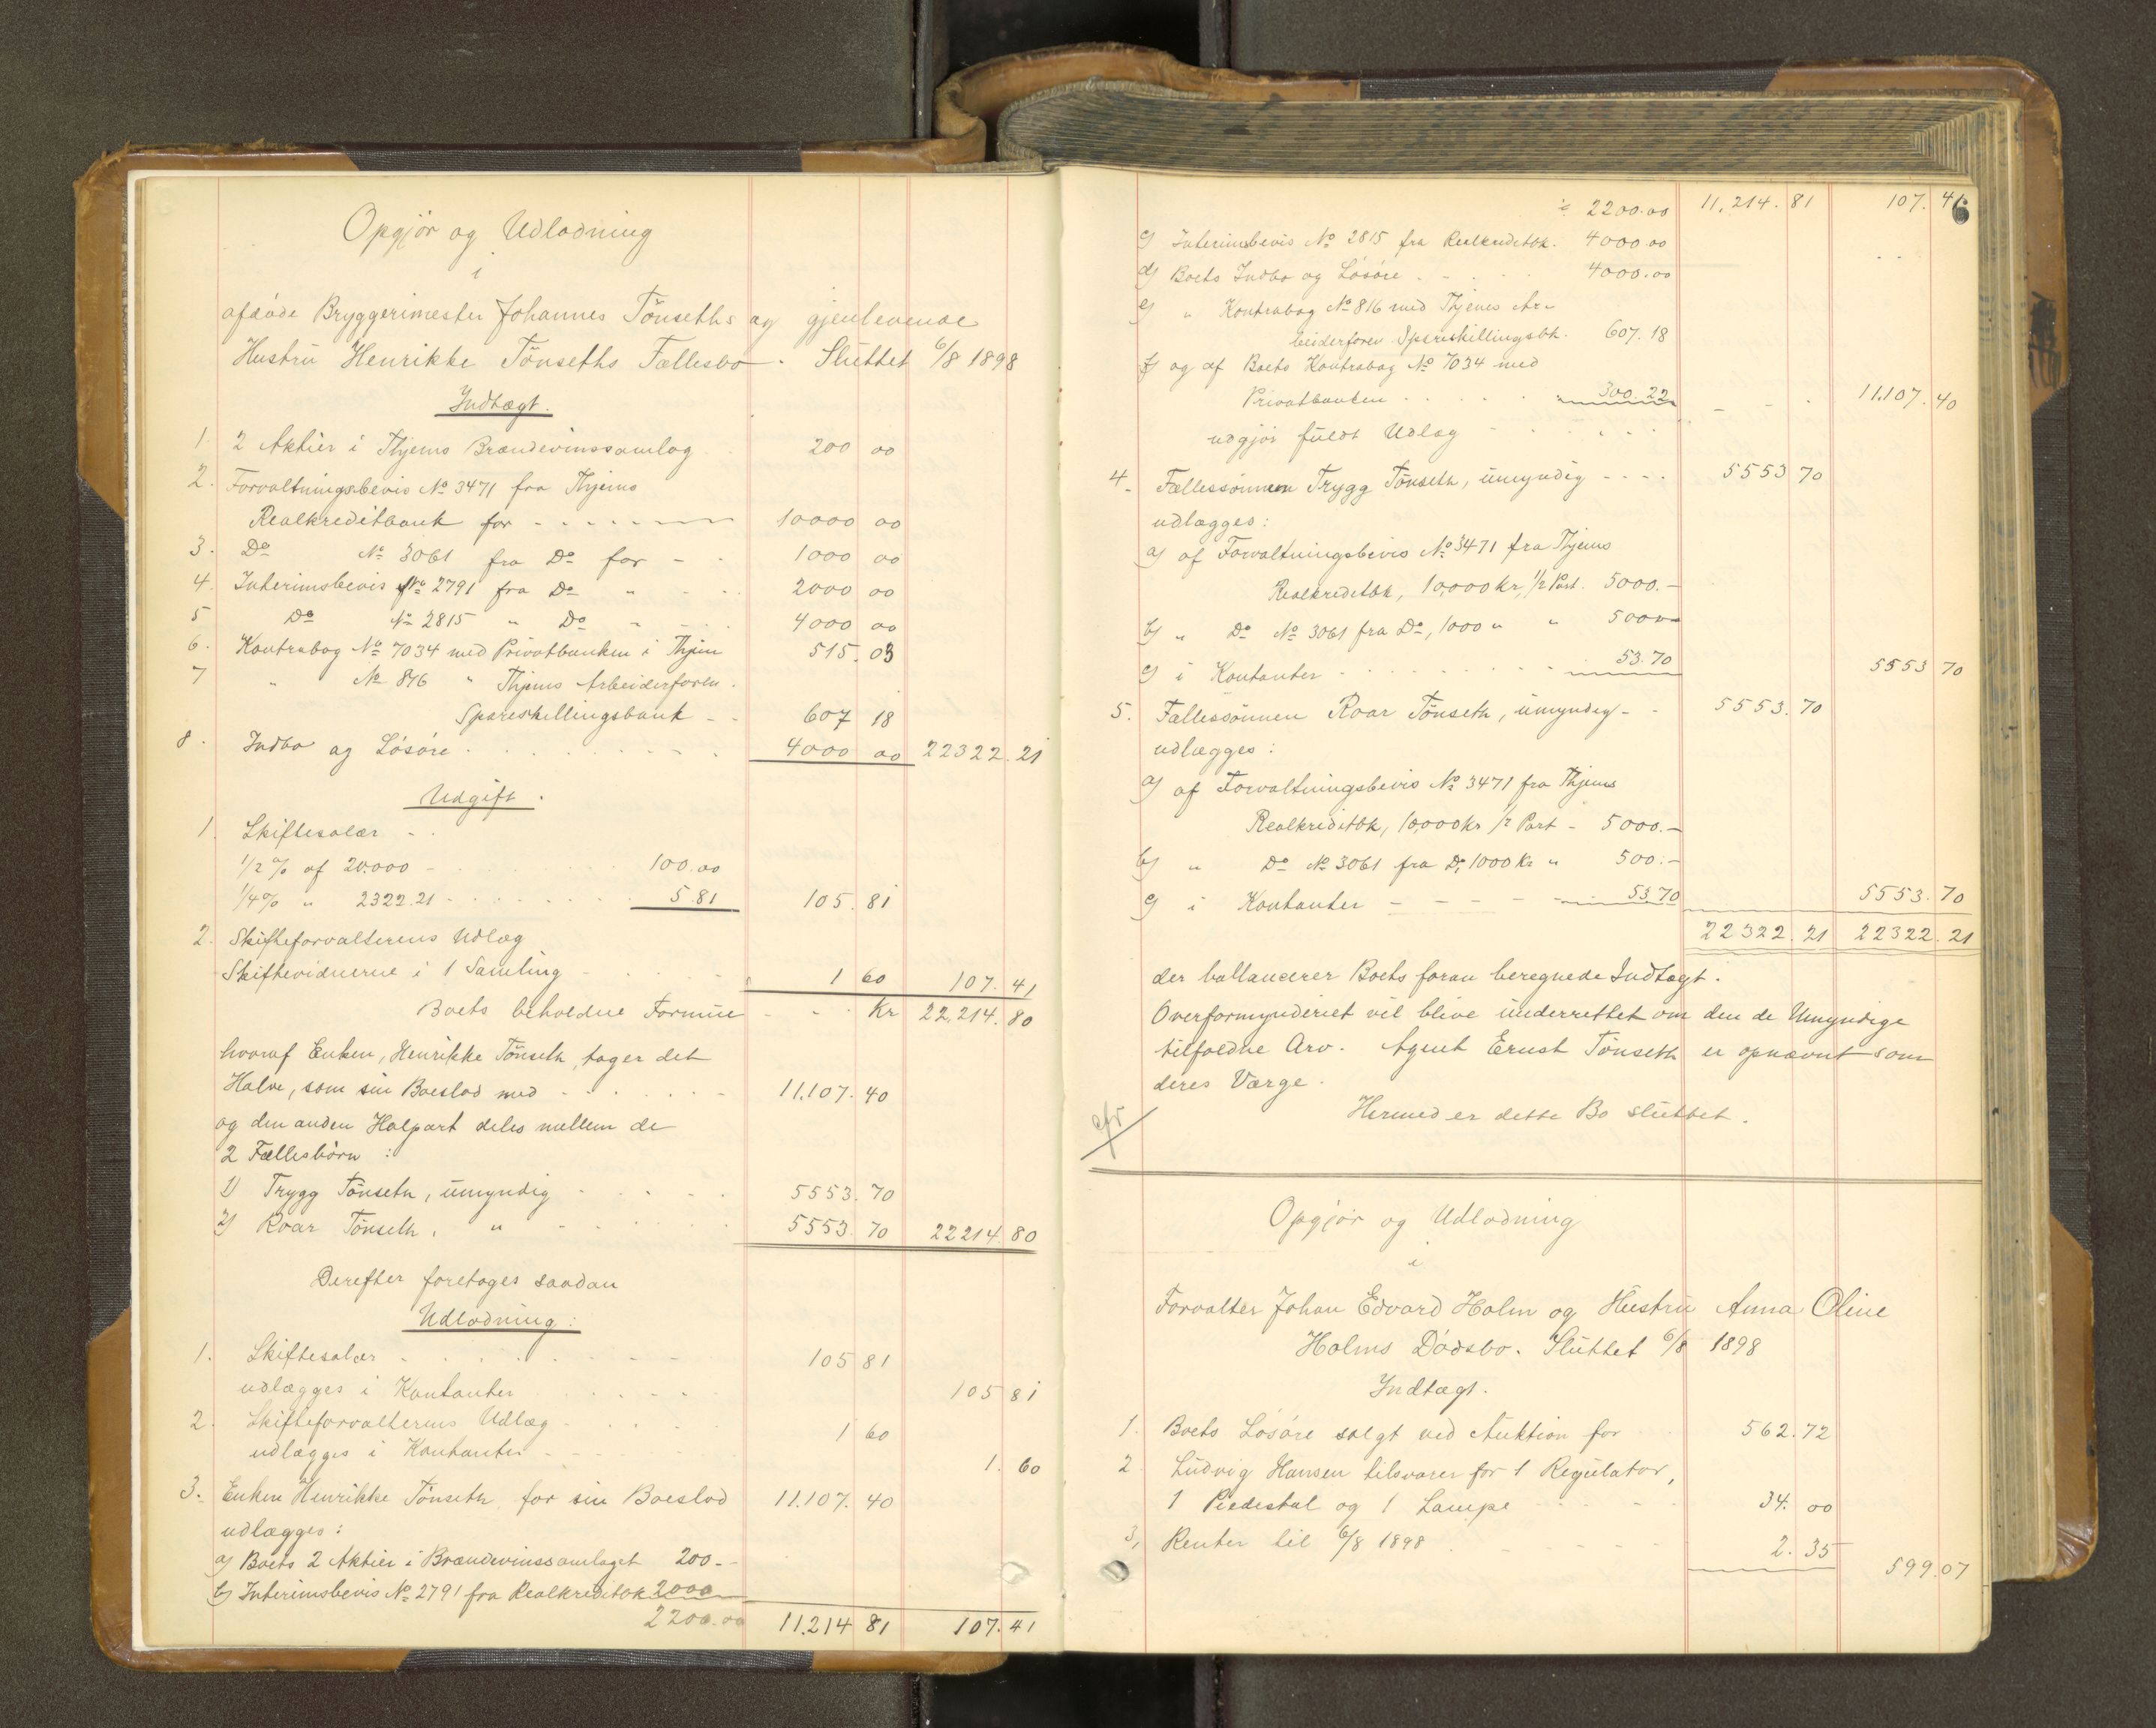 Opgjör og Udlodning
i
afdöde Bryggerimester Johannes Tönseths og gjenlevende
Hustru Henrikke Tönseths Fællesbo. Sluttet 6/8 1898
Indtægt.
1. 2 Aktier i Thjems Brændevinssamlag 200 00
2. Forvaltningsbevis No 3471 fra Thjems
Realkreditbank for - - - 10000 00
3. Do No 3061 fra Do for - - 1000 00
4. Interimsbevis No 2791 fra Do " - - 2000 00
5 Do No 2815 " Do " - - 4000 00
6. Kontrabog No 7034 med Privatbanken i Thjem 515.03
7 " No 816 " Thjems Arbeiderforen.
Spareskillingsbank - - 607 18
8. Indbo og Lösöre - - - 4000 00 22322.21
Udgift.
1. Skiftesalær - -
1/2 % af 20.000 - - - 100.00
1/4 % " 2322.21 - - - 5.81 105.81
2. Skifteforvalterens Udlæg
Skiftevidnerne i 1 Samling - - - 1 60 107.41
Boets beholdne Formue - - Kr 22.214.80
hvoraf Enken, Henrikke Tönseth, tager det
Halve, som sin Boeslod med - - - 11.107.40
og den anden Halpart deles mellem de
2 Fællesbörn :
1) Trygg Tönseth, umyndig - - - 5553.70
2) Roar Tönseth, " - - - 5553.70 22214.80
Derefter foretages saadan
Udlodning:
1. Skiftesalær - - - 105 81
udlægges i Kontanter - - - 105 81
2. Skifteforvalterens Udlæg - - - 1 60
udlægges i Kontanter - - - 1.60
3. Enken Henrikke Tönseth for sin Boeslod 11.107.40
udlægges:
a) Boets 2 Aktier i Brændevinssamlaget 200.-
b) Interimsbevis No 2791 fra Realkreditbk 2000
2200.00 11.214 81 107.41
6
2200.00 11,214.81 107.41
c) Interimsbevis No 2815 fra Realkreditbk. 4000.00
d) Boets Indbo og Lösöre - - - 4000.00
e) " Kontrabog No 816 med Thjems Ar-
beiderforen Spareskillingsbk. 607.18
f) og af Boets Kontrabog No 7034 med
Privatbanken - - - 300.22 - - - 11.107.40
udgjör fuldt Udlæg - - -
4. Fællessönnen Trygg Tönseth, umyndig - - - - 5553 70
udlægges:
a) af Forvaltningsbevis No 3471 fra Thjems
Realkreditbk, 10,000 kr, 1/2 Part. 5000.-
b) " Do No 3061 fra Do, 1000 " " 500.-
c) i Kontanter - - - 53.70 5553 70
5. Fællessönnen Roar Tönseth, umyndig - - 5553.70
udlægges:
a) af Forvaltningsbevis No 3471 fra Thjems
Realkreditbk, 10,000 Kr 1/2 Part - 5000.-
b) " Do No 3061 fra Do, 1000 Kr " 500.-
c) i Kontanter - - - 53.70 5553.70
22322.21 22322.21
der ballancerer Boets foran beregnede Indtægt.
Overformynderiet vil blive underrettet om den de Umyndige
tilfaldne Arv. Agent Ernst Tönseth er opnævnt som
deres Værge.
Hermed er dette Bo sluttet.
cfr
Opgjör og Udlodning
i
Forvalter Johan Edvard Holm og Hustru Anna Oline
Holms Dödsbo. Sluttet 6/8 1898
Indtægt.
1. Boets Lösöre solgt ved Auktion for 562.72
2 Ludvig Hansen tilsvarer for 1 Regulator,
1 Piedestal og 1 Lampe - - - 34.00
3, Renter til 6/8 1898 - - - 2.35 599.07